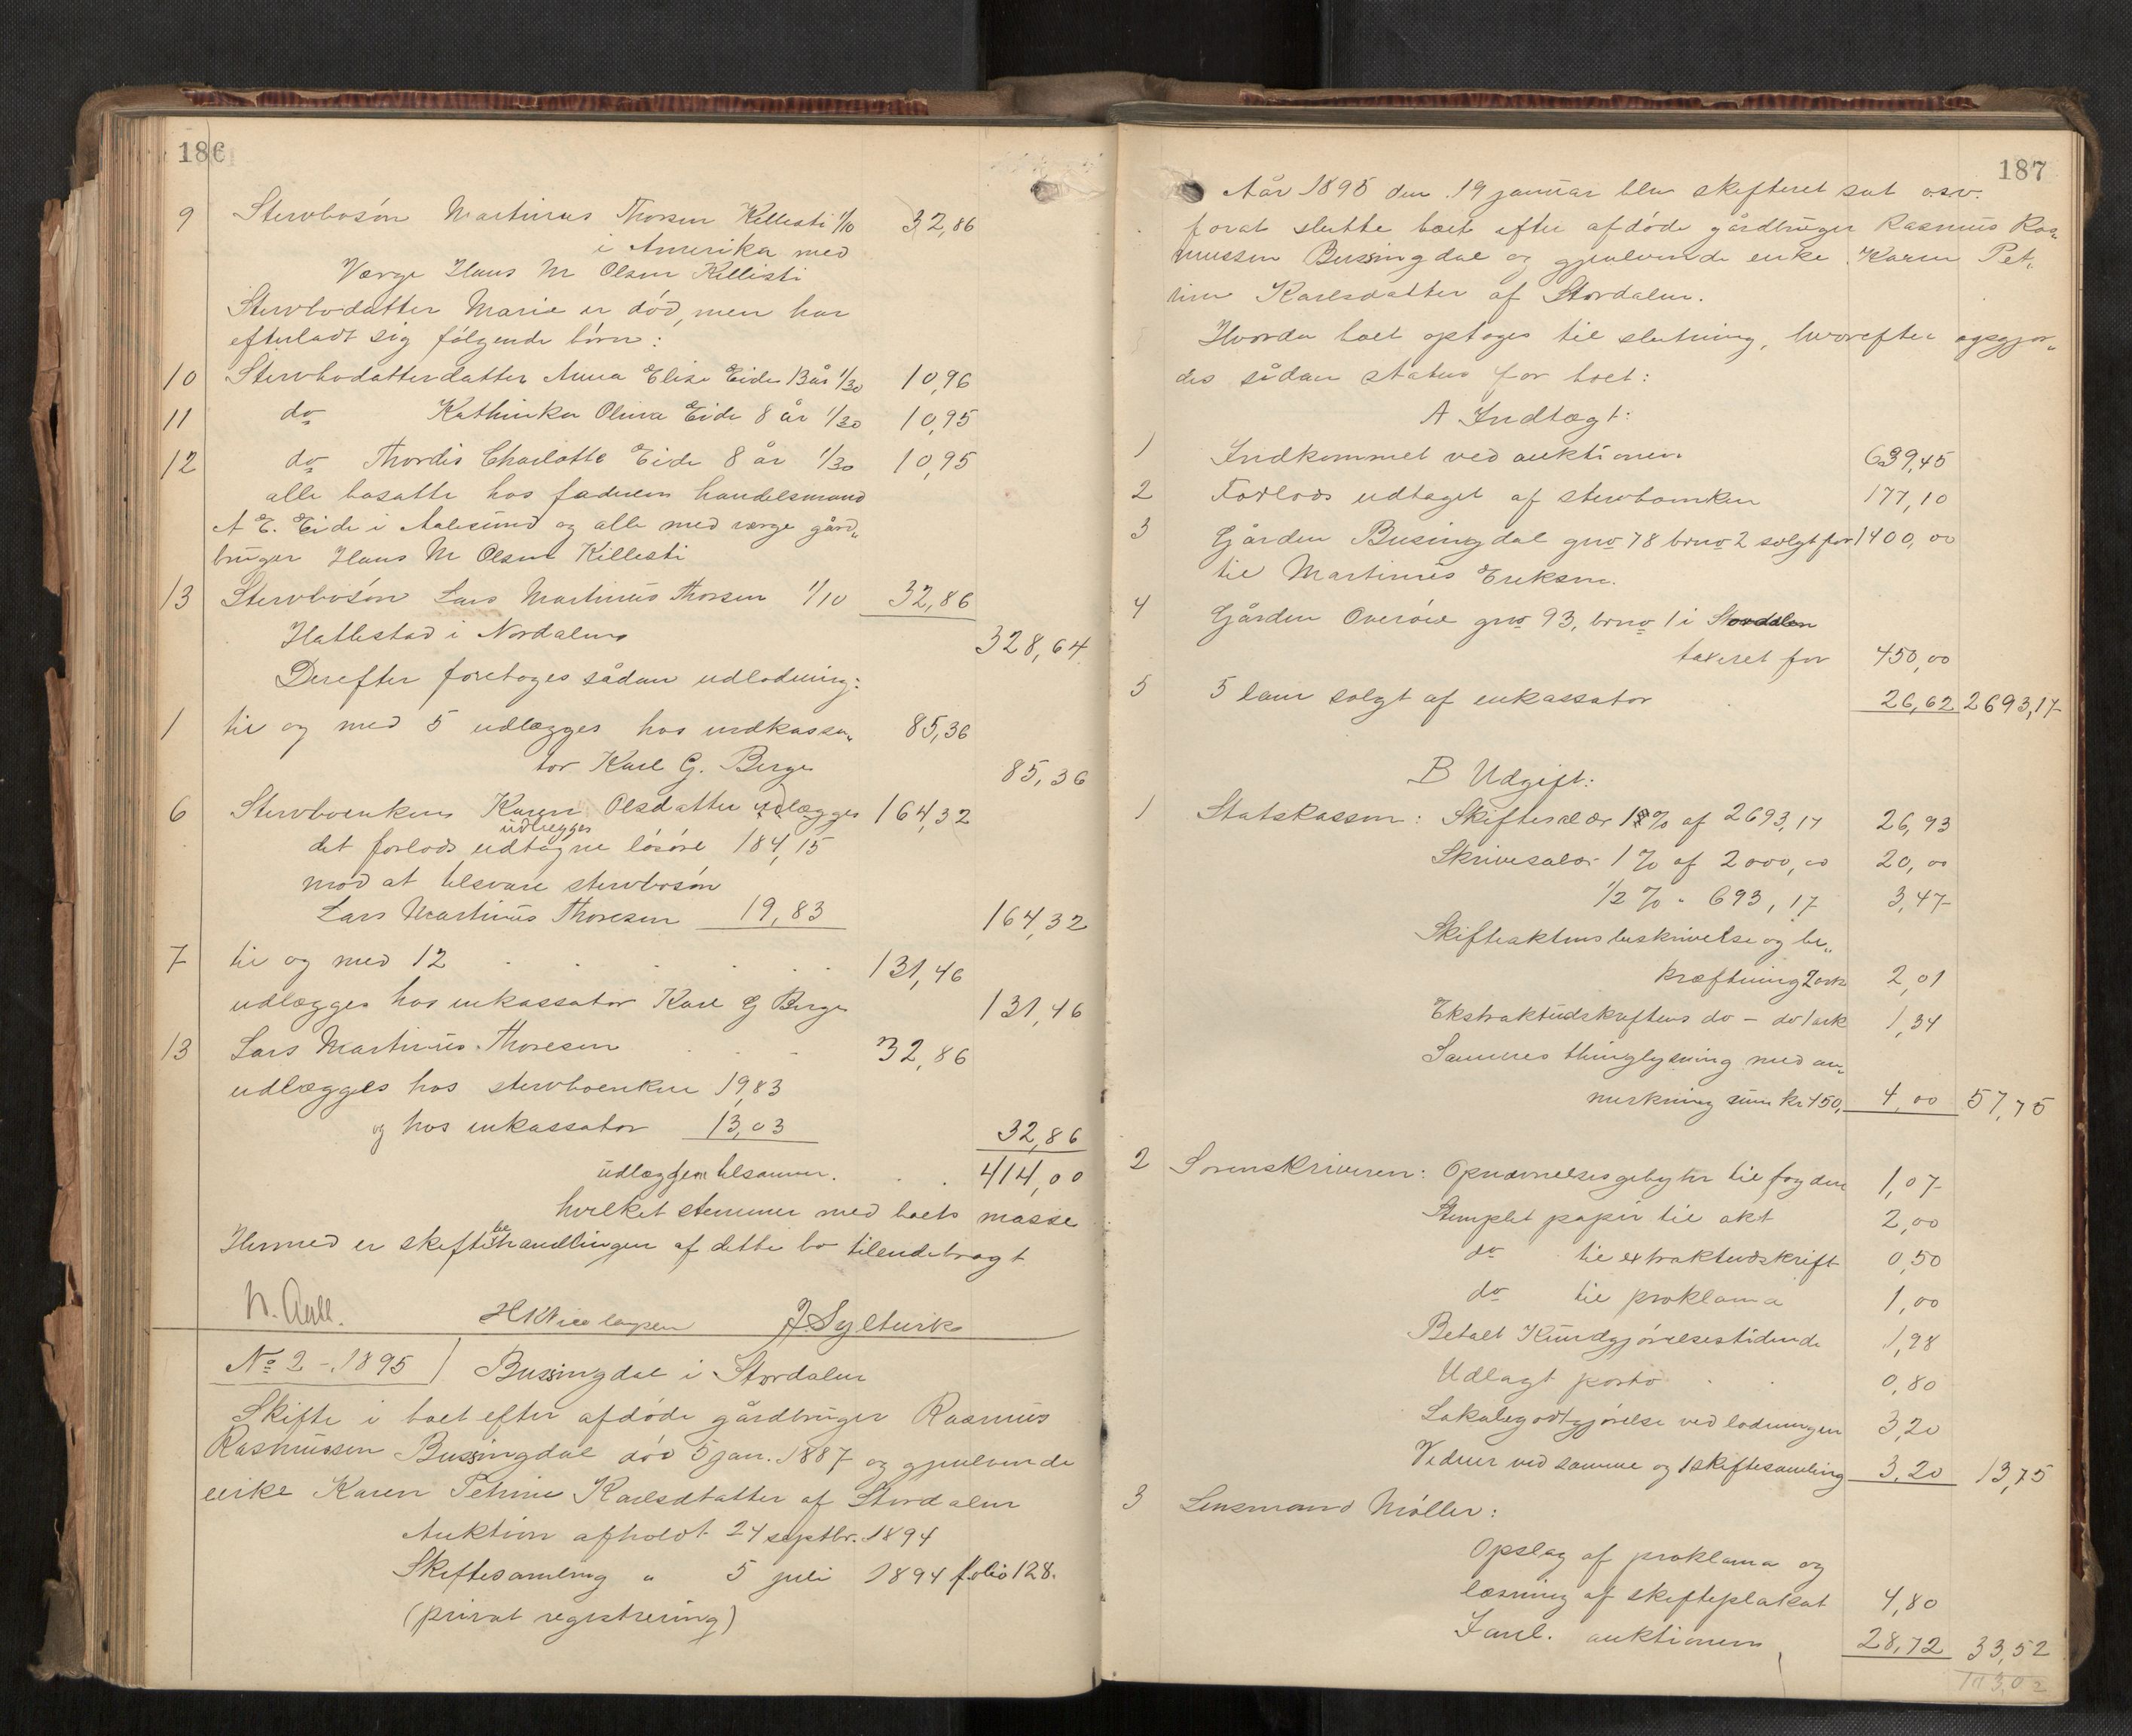 186
9 Stervbosøn Martinus Thorsen Killesti 1/10 32,86
i Amerika med
Værge Hans M Olsen Killisti
Stervbodatter Marie er død, men har
efterladt sig følgende børn:
10 Stervbodatterdatter Anna Elise Eide 13 år 1/30 10,96
11 do Kathinka Oliva Eide 8 år 1/30 10,95
12 do Thordis Charlotte Eide 8 år 1/30 10,95
alle bosatte hos faderen handelsmand
A E. Eide i Aalesund og alle med verge gård„
bruger Hans M Olsen Killesti
13 Stervbosøn Lars Martinus Thorsen 1/10 32,86
Hallestad i Nordalen
328,64
Derefter foretoges sådan udlodning:
1 til og med 5 udlægges hos indkassa„ 85,36
tor Karl G. Berge 85,36
6 Stervboenken Karen Olsdatter udlægges 164,32
udlægges
det forlods udtagne løsøre 184,15
mod at tilsvare stervbosøn
Lars Martinus Thoresen 19,83 164,32
7 til og med 12 . . . . . . 131,46
udlægges hos inkassator Karl G Berge 131,46
13 Lars Martinus Thoresen . . . 32,86
udlægges hos stervboenken 19,83
og hos inkassator 13,03 32,86
udlæggen tilsammen. . . 414,00
hvilket stemmer med boets masse
Hermed er skiftebehandlingen af dette bo tilendebragt
N. Aall. HKNicolaysen J. Sylteviks
No 2 - 1895 Bussingdal i Stordalen
Skifte i boet efter afdøde gårdbruger Rasmus
Rasmussen Bussingdal død 5 jan. 1887 og gjenlevende
enke Karen Petrine Karlsdtatter af Stordalen
Auktion afholdt 24 septbr. 1894
Skiftesamling " 5 juli 1894 folio 128.
(privat registrering)
187
Aår 1895 den 19 januar blev skifteret sat o.s.v.
forat slutte boet efter afdøde gårdbruger Rasmus Ras„
mussen Bussingdal og gjenlevende enke Karen Pet„
rine Karlsdatter af Stordalen.
Hvorda boet optoges til slutning, hvorefter opgjor„
des sådan status for boet:
A Indtægt:
1 Indkommet ved auktionen 639,45
2 Forlods udtaget af stervboenken 177,10
3 Gården Busingdal gno 78 brno 2 solgt for 1400,00
til Martinus Eriksen.
4 Gården Overøie gno 93, brno 1 i Stordalen
taxeret for 450,00
5 5 lam solgt af enkassator 26,62 2693,17
B Udgift:
1 Statskassen: Skiftesalær 1% af 2693,17 26,93
Skrivesalær 1% af 2000,00 20,00
1/2 % " 693,17 3,47
Skifteaktens beskrivelse og be„
kræftning 2 ark 2,01
Ekstraktudskriftens do - do 1 ark 1,34
Sammes thinglysning med an„
merkning sum kr 450, 4,00 57,75
2 Sorenskriveren: Opnævnelsesgebyhr til fogden 1,07
Stemplet papir til akt 2,00
do til extraktudskrift 0,50
do til proklama 1,00
Betalt Kundgjørelsestidende 1,98
Udlagt porto . . 0,80
Lokalegodtgjørelse ved lodningen 3,20
Vidner ved samme og 1 skiftesamling 3,20 13,75
3 Lensmand Møller:
Opslag af proklama og
læsning af skifteplakat 4,80
Inkl. auktionen 28,72 33,52